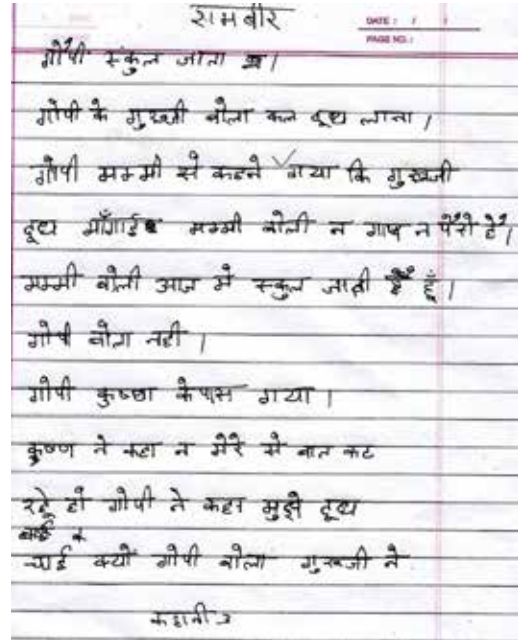 रामबीर
DATE : / /
PAGE NO. :
गोपी स्कुल जाता
गोपी के गुरुजी बोला कल दूध लाना ।
गोपी मम्मी से कहने गया कि गुरुजी
दूध माँगाई मम्मी बोली न गाय न पैसे है ।
मम्मी बोली आज मे स्कुल जाती हूँ ।
गोपी बोला नही ।
गोपी कृष्णा के पास गया ।
कृष्ण ने कहा न मेरे से बात कट
रहे हो गोपी ने कहा मुझे दूध
चाई क्यों गोपी बोला गुरुजी ने
कहानी